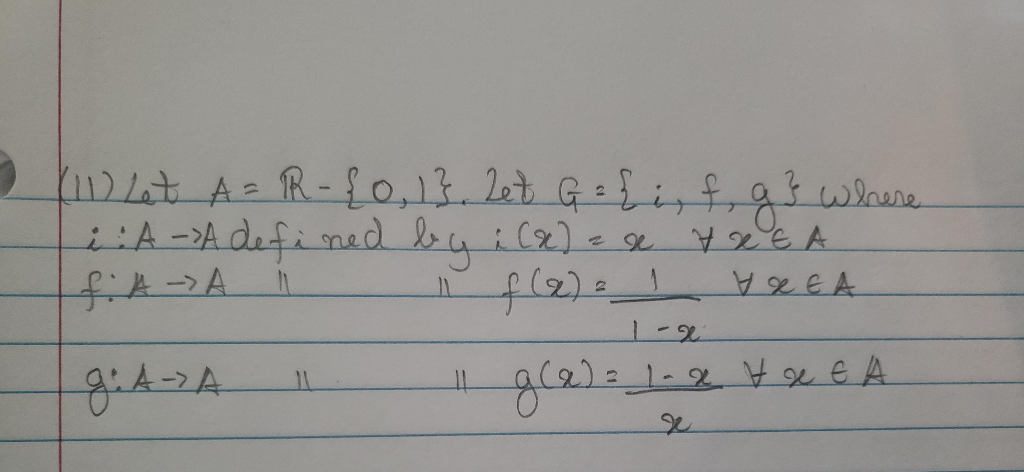 (11) Let A = ℝ - {0, 1}. Let G = {i, f, g} where
i : A -> A defined by i(x) = x ∀ x ∈ A
f : A -> A " " f(x) = 1/(1-x) ∀ x ∈ A
g : A -> A " " g(x) = (1-x)/x ∀ x ∈ A